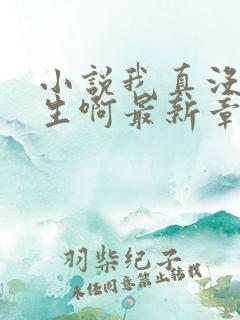 小説我真没
生啊最新章
羽柴纪子
未经同意禁止转载